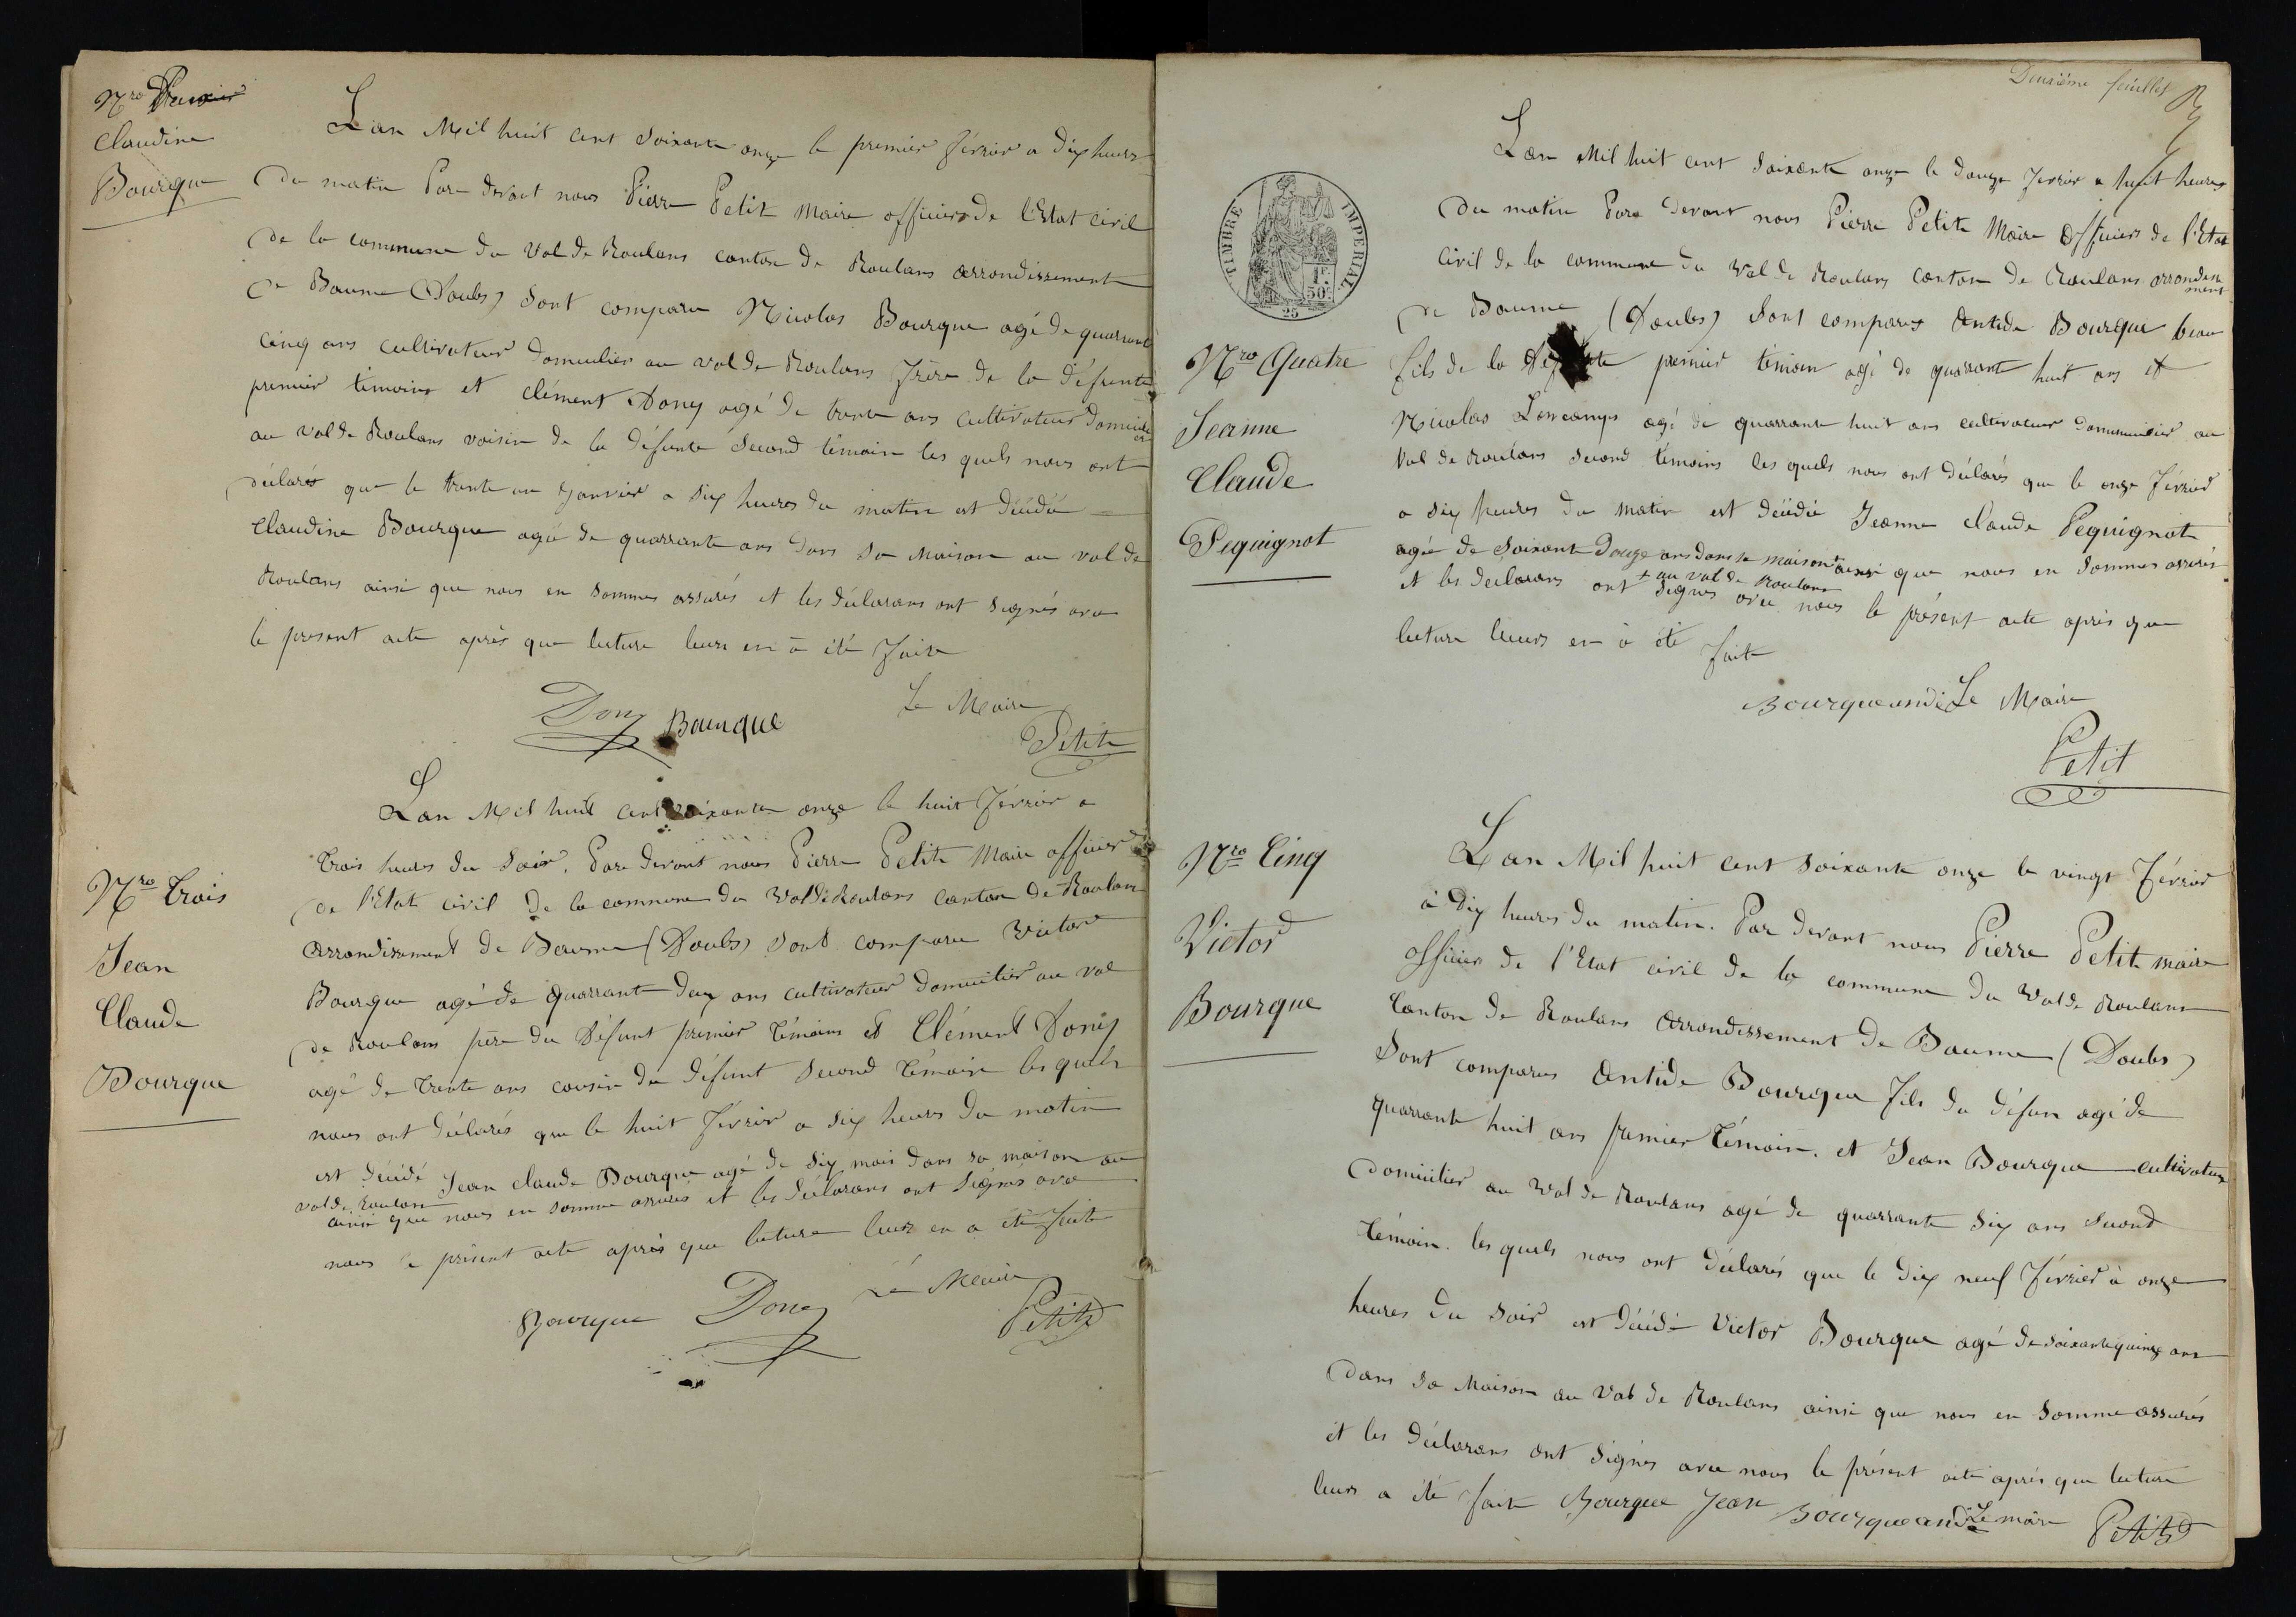 Nro Deuxier
Claudine
Bourque
Lan Mil huit cent soixante onze le premier février a dix heures
du matin Par devant nous Pierre Petit Maire officiers de l'Etat Civil
de la commune du Val de Roulans canton de Roulans arrondissement
de Baume (Doubs) sont comparu Nicolas Bourque agé de quarante
cinq ans cultivateur domicilier au val de Roulans frère de la défunte
premier témoins et clément Dony agé de trente ans cultivateur domicilier
au val de Roulans voisin de la défunte second témoin les quels nous ont
déclarés que le trente un Janvier a six heures du matin est décédée
Claudine Bourque agée de quarrante ans dans sa maison au val de
Roulans ainsi que nous en sommes assurés et les déclarans ont signés avec
le present acte après que lecture leurs en a été faite
Dony Bourque Le Maire
Petit
Nro trois
Jean
Claude
Bourque
Lan Mil huit cent soixante onze le huit février a
trois heures du soir. Par devant nous Pierre Petit Maire officier
de l'Etat civil de la commune du Val de Roulans canton de Roulans
arrondissement de Baume (Doubs) sont comparu Victor
Bourque agé de quarrante deux ans cultivateur domicilier au val
de Roulans père du défunt premier témoins et Clément Dony
agé de trente ans cousin du défunt second témoin les quels
nous ont déclarés que le huit février a six heures du matin
est décédé Jean claude Bourque agé de six mois dans sa maison au
val de Roulans
ainsi que nous en somme assurés et les déclarans ont signés avec
nous le présent acte après que lecture leurs en a été faite
Bourque Dony Le Maire
Petit
Deuxième feuillet
TIMBRE IMPERIAL
1F.
50c.
25
Nro Quatre
Jeanne
Claude
Pequignot
Lan Mil huit cent soixante onze le douze février a huit heures
du matin Par devant nous Pierre Petit Maire officiers de l'Etat
Civil de la commune du Val de Roulans canton de Roulans arrondissement
de Baume (Doubs) sont comparus Antide Bourque beau
fils de la défunte premier témoin agé de quarrante huit ans et
Nicolas Loncamps agé de quarrante huit ans cultivateur domicilier au
Val de Roulans second témoins les quels nous ont déclarés que le onze février
a six heures du matin est décédée Jeanne claude Pequignot
agée de soixante douze ans dans sa maison + ainsi que nous en sommes assurés
+ au val de Roulans
et les déclarans ont signés avec nous le présent acte après que
lecture leurs en a été fait
Bourqueantide Le Maire
Petit
Nro Cinq
Victor
Bourque
Lan Mil huit cent soixante onze le vingt février
à dix heures du matin. Par devant nous Pierre Petit maire
officier de l'Etat civil de la commune du Val de Roulans
Canton de Roulans arrondissement de Baume (Doubs)
sont comparus Antide Bourque fils du défun agé de
quarrante huit ans premier témoin. et Jean Bourque cultivateur
domicilier au Val de Roulans agé de quarrante six ans second
témoin. les quels nous ont déclarés que le dix neuf février à onze
heures du soir est décédé Victor Bourque agé de soixante quinze ans
dans sa maison au Val de Roulans ainsi que nous en somme assurés
et les déclarans ont signés avec nous le présent acte après que lecture
leurs a été fait Bourque Jean Bourqueantide Le maire Petit